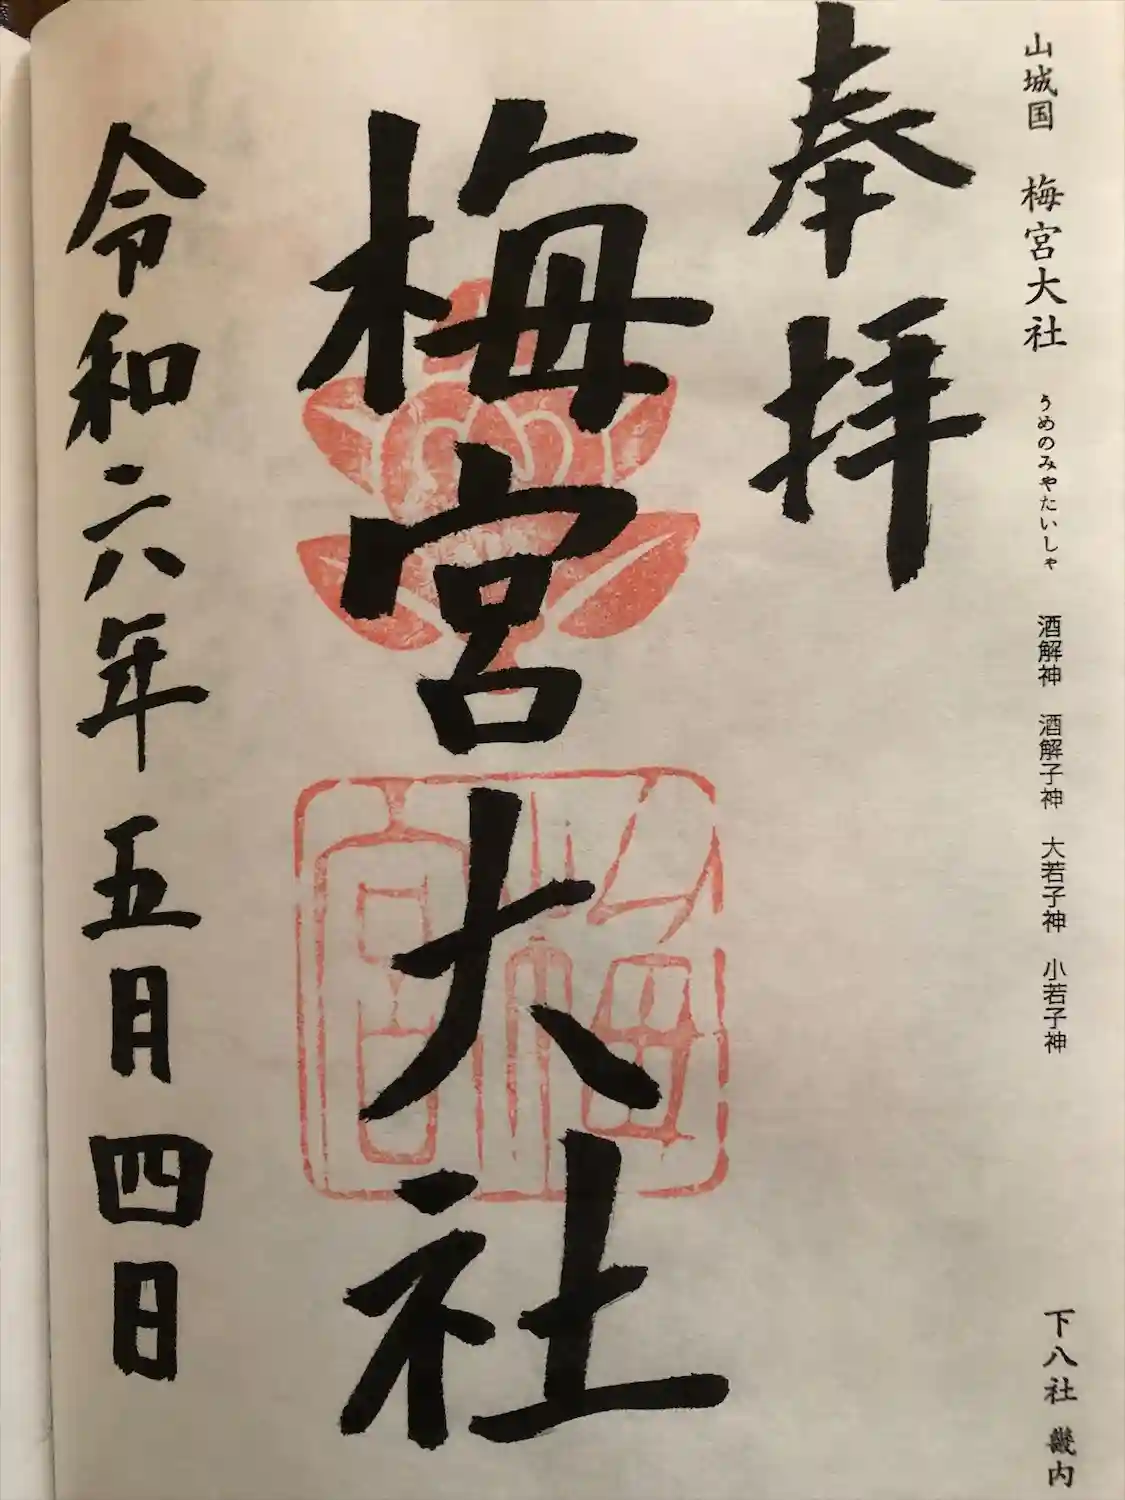 山城国　梅宮大社　うめのみやたいしゃ　酒解神　酒解子神　大若子神　小若子神　下八社　畿内
奉拝
梅宮大社
令和六年五月四日